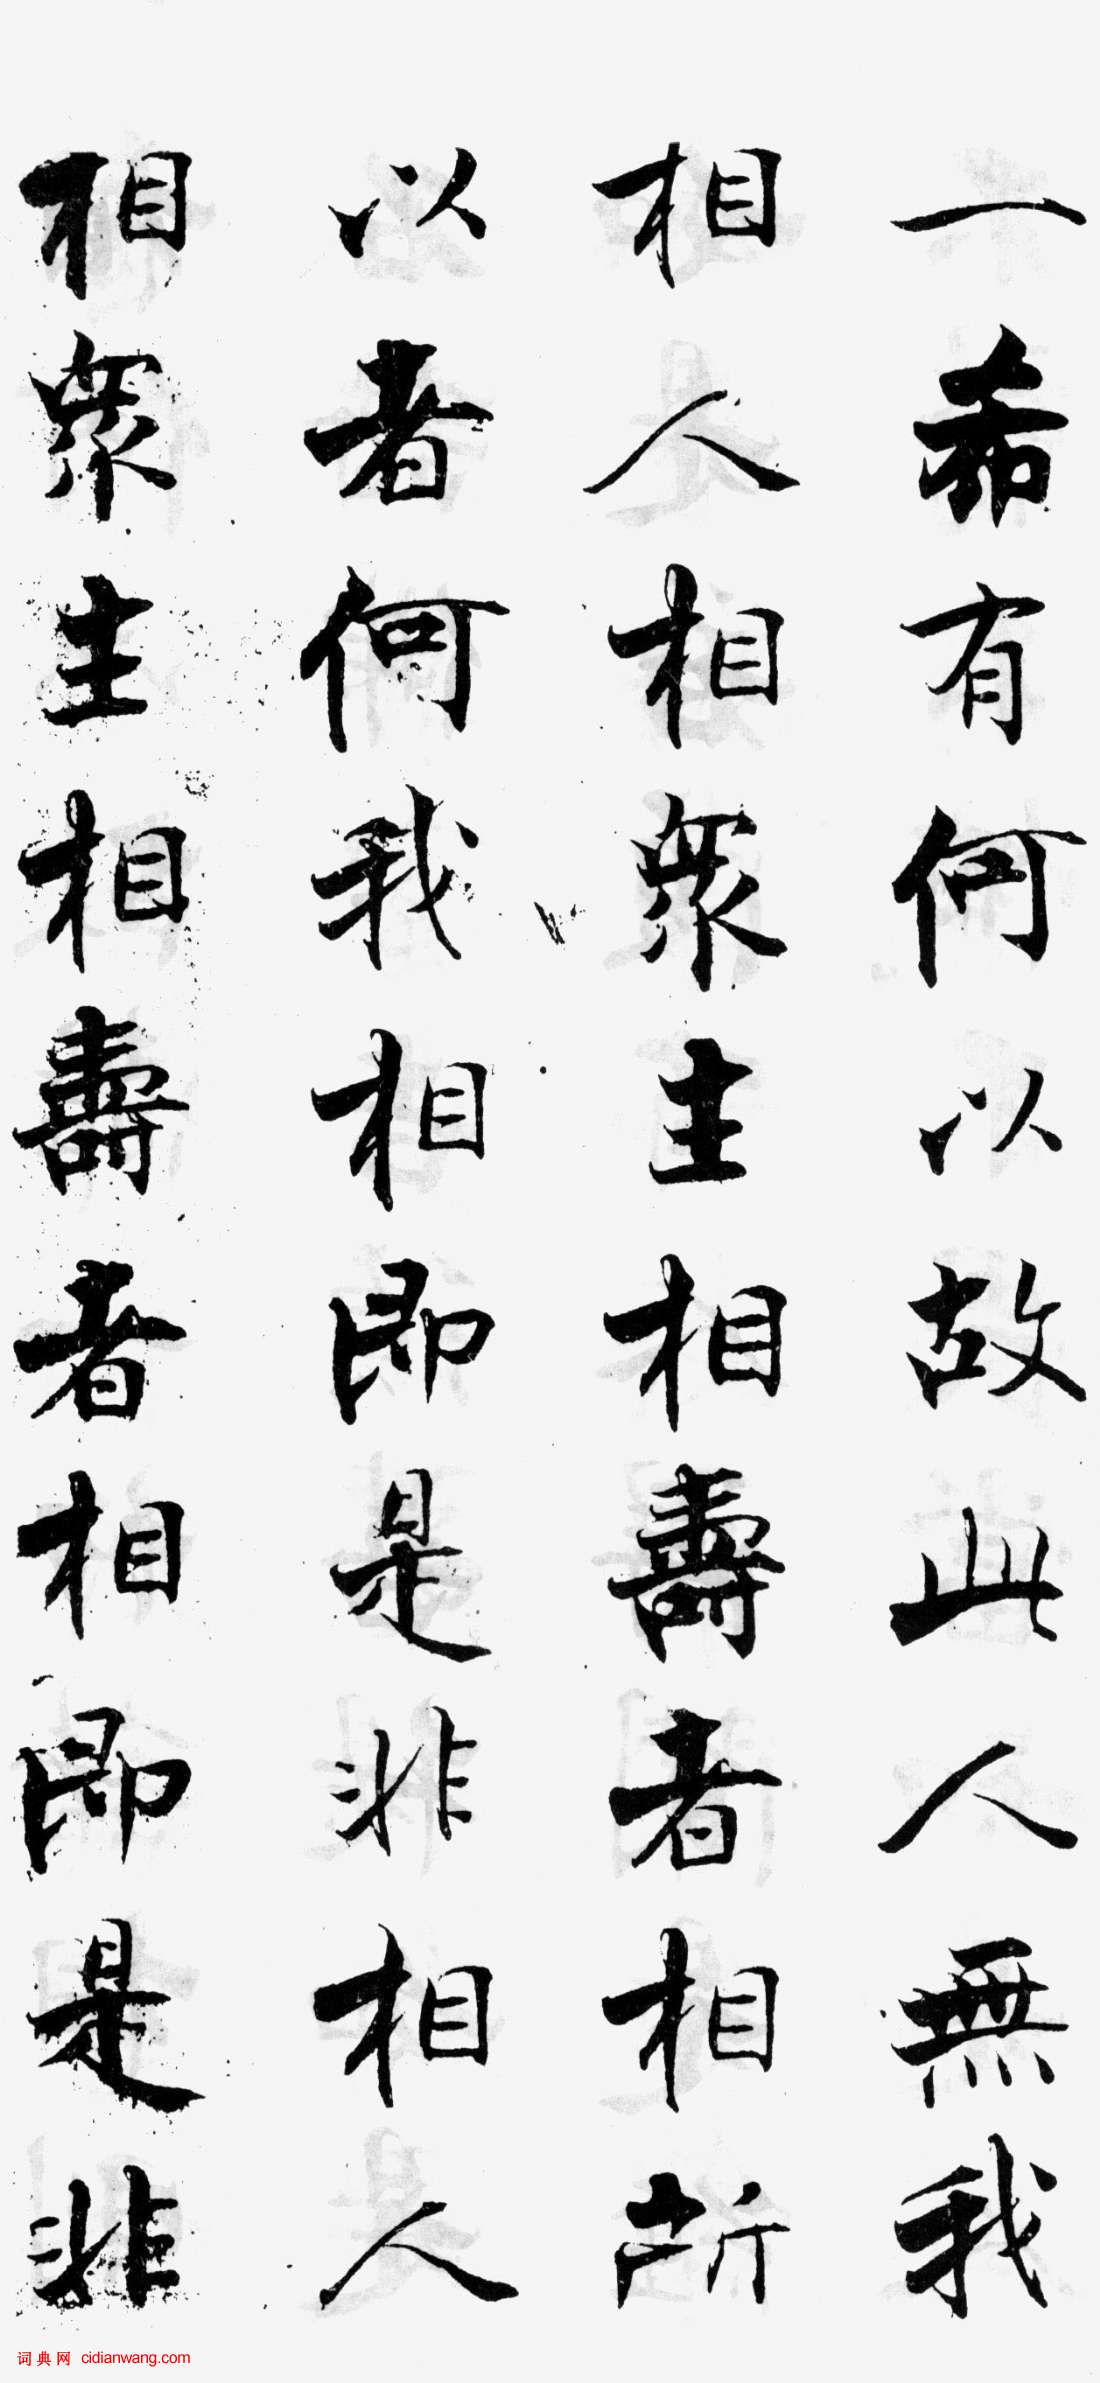 一希有何以故此人無我
相人相衆生相壽者相所
以者何我相即是非相人
相衆生相壽者相即是非
词典网 cidianwang.com